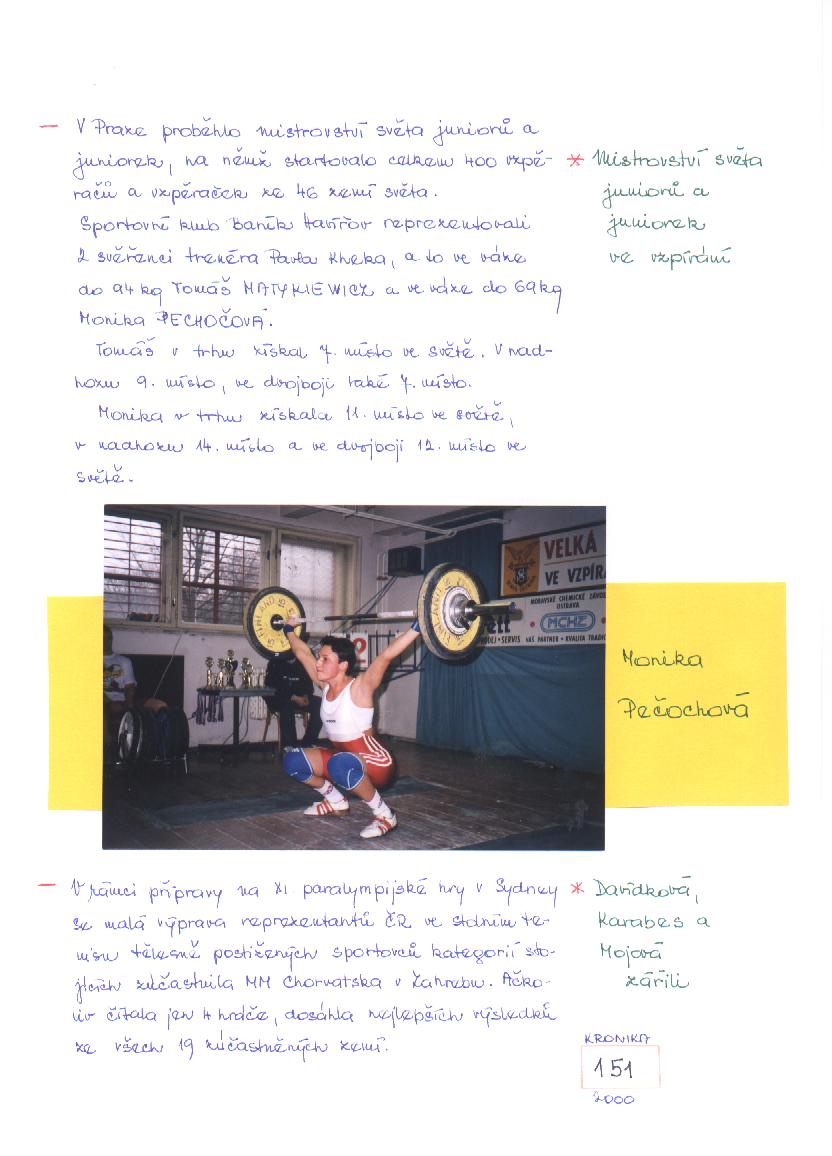 – V Praze proběhlo mistrovství světa juniorů a
juniorek, na němž startovalo celkem 400 vzpě-
račů a vzpěraček ze 46 zemí světa.
Sportovní klub Baník Havířov reprezentovali
2 svěřenci trenéra Pavla Kheka, a to ve váze
do 94 kg Tomáš MATYKIEWICZ a ve váze do 69 kg
Monika PECHOČOVÁ.
Tomáš v trhu získal 7. místo ve světě. V nad-
hozu 9. místo, ve dvojboji také 7. místo.
Monika v trhu získala 11. místo ve světě,
v nadhozu 14. místo a ve dvojboji 12. místo ve
světě.
* Mistrovství světa
juniorů a
juniorek
ve vzpírání
VELKÁ
VE VZPÍRA
MORAVSKÉ CHEMICKÉ ZÁVO
OSTRAVA
MCHZ
DEJ • SERVIS VÁŠ PARTNER • KVALITA TRADIC
FINLAND
Monika
Pečochová
– V rámci přípravy na XI paralympijské hry v Sydney
se malá výprava reprezentantů ČR ve stolním te-
nisu tělesně postižených sportovců kategorií sto-
jících zúčastnila MM Chorvatska v Záhrebu. Ačko-
liv čítala jen 4 hráče, dosáhla nejlepších výsledků
ze všech 19 zúčastněných zemí.
* Davídková,
Karabes a
Mojová
zářili
KRONIKA
151
2000